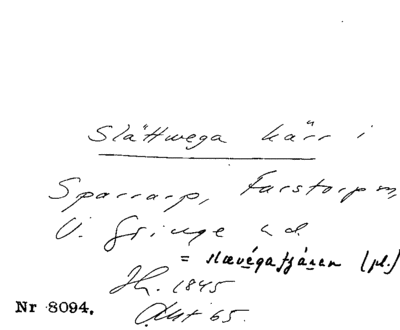 Slättwega kärr i
Sparrarp, Farstorp sn,
V. Göinge hd.
= slævégatjáren (pl.)
Jh. 1845
Akt 65.
Nr 8094.